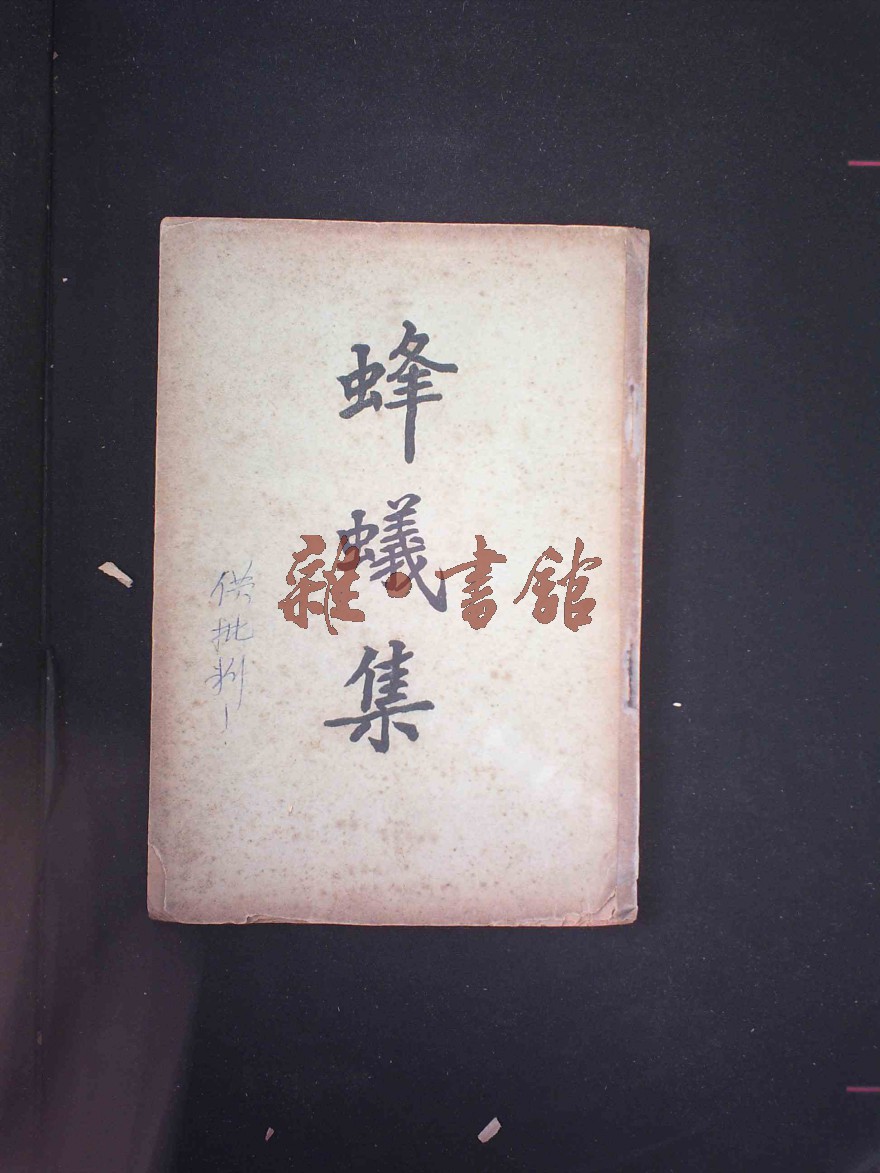 蜂蟻集
供批判！
雜·書館